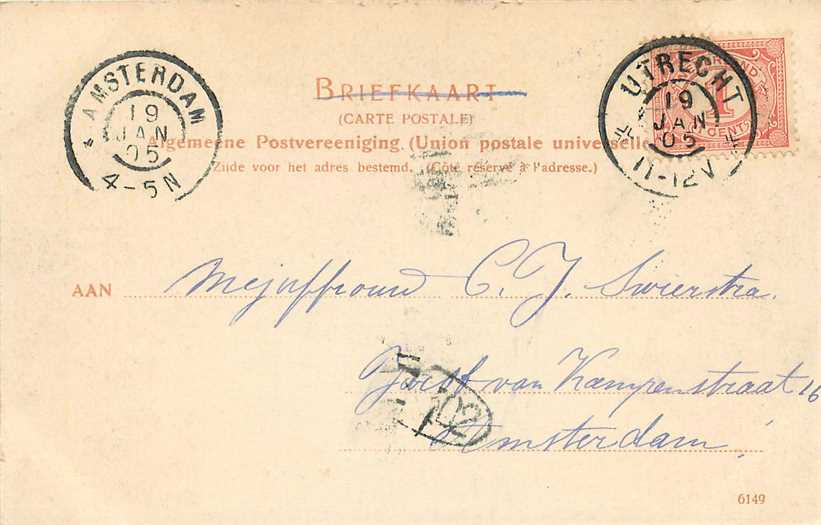 AMSTERDAM
19
JAN
05
4-5N
UTRECHT
19
JAN
05
11-12V
1
CENT
BRIEFKAART
(CARTE POSTALE)
Algemeene Postvereeniging. (Union postale universelle
Zijde voor het adres bestemd. (Côté réservé à l'adresse.)
AAN Mejuffrouw C. J. Swierstra.
Joost van Kampenstraat 16
Amsterdam
102
6149